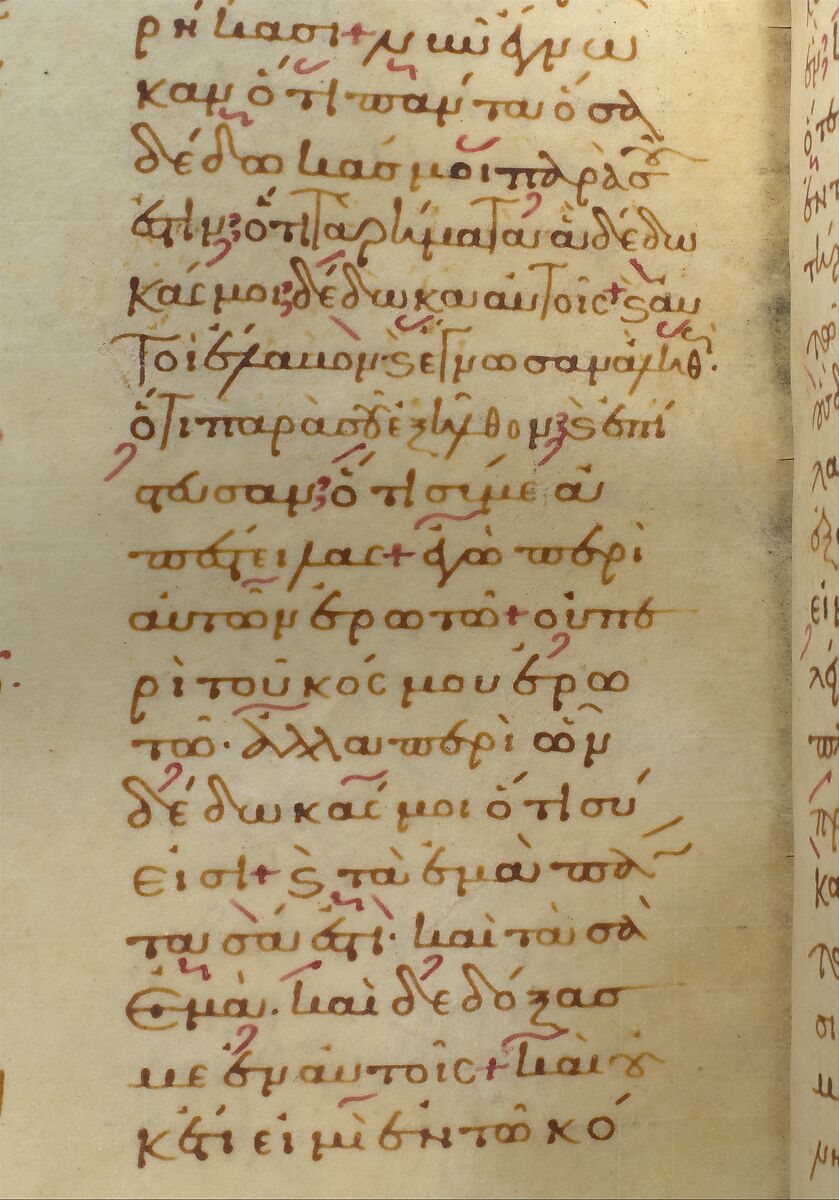 ρήκασι + νῦν ἔγνω
καν ὅτι πάντα ὅσα
δέδωκάς μοι παρὰ σοῦ
ἐστιν· ὅτι τὰ ρήματα ἃ δέδω
κάς μοι· δέδωκα αὐτοῖς + ϗ αὐ
τοὶ ἔλαβον· ϗ ἔγνωσαν ἀληθῶς·
ὅτι παρὰ σοῦ ἐξῆλθον· ϗ ἐπί
στευσαν· ὅτι σύ με ἀ
πέστειλας + ἐγὼ περὶ
αὐτῶν ἐρωτῶ + οὐ πε
ρὶ τοῦ κόσμου ἐρω
τῶ· ἀλλὰ περὶ ὧν
δέδωκάς μοι ὅτι σύ
εἰσι + ϗ τὰ ἐμὰ πάν
τα σά ἐστι· καὶ τὰ σὰ
ἐμά. καὶ δεδόξασ
με ἐν αὐτοῖς + καὶ οὐ
κέτι εἰμὶ ἐν τῶ κό